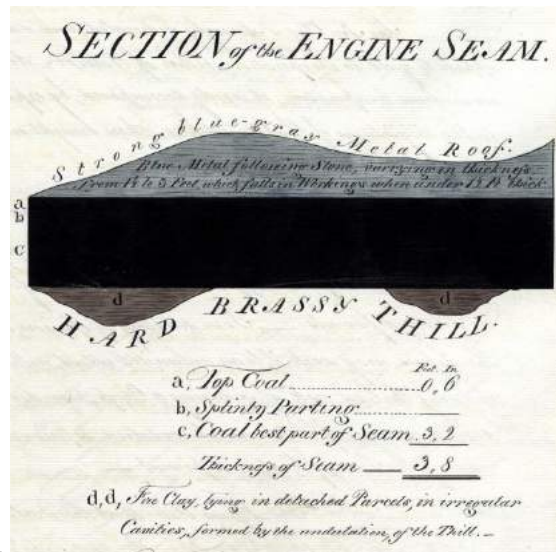 SECTION of the ENGINE SEAM.
Strong blue-gray Metal Roof.
Blue Metal following Stone, varying in thickness
From 1½ to 5 Feet, which falls in Workings when under 1½ Ft thick
a
b
c
d
d
HARD BRASSY THILL.
Feet. In
a, Top Coal 0,6
b, Splinty Parting
c, Coal best part of Seam 3,2
Thickness of Seam 3,8
d,d, Fire Clay, lying in detached Parcels, in irregular
Cavities, formed by the undulation, of the Thill. —